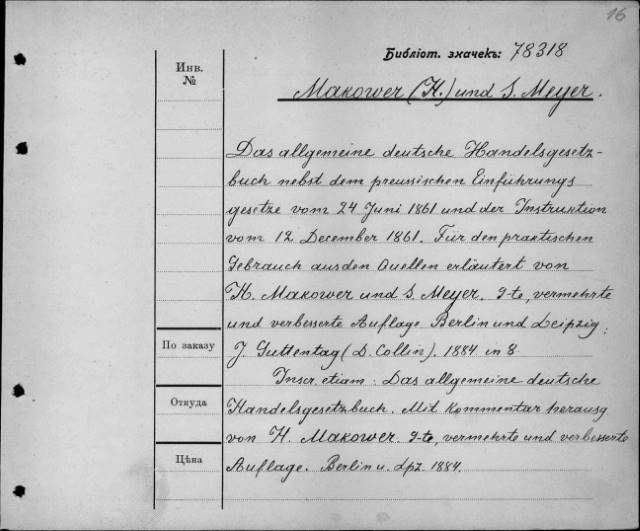 16
Библіот. значекъ: 78318
Инв.
№
Makower (H.) und S. Meyer.
Das allgemeine deutsche Handelsgesetz-
buch nebst dem preussischen Einführungs
gesetze vom 24 Juni 1861 und der Instruktion
vom 12 December 1861. Für den practischen
Gebrauch aus den Quellen erläutert von
H. Makower und S. Meyer. 9-te, vermehrte
und verbesserte Auflage. Berlin und Leipzig:
По заказу
J. Guttentag (D. Collin). 1884. in 8.
Inscr. etiam: Das allgemeine deutsche
Откуда
Handelsgesetzbuch. Mit Kommentar herausg
von H. Makower. 9-te, vermehrte und verbesserte
Цѣна
Auflage. Berlin u. Lpz. 1884.